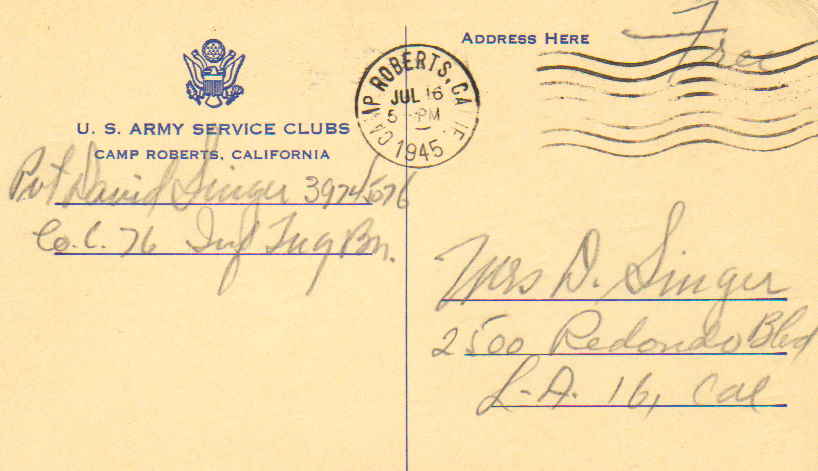 ADDRESS HERE
Free
CAMP ROBERTS, CALIF.
JUL 16
5 PM
1945
U. S. ARMY SERVICE CLUBS
CAMP ROBERTS, CALIFORNIA
Pvt David Singer
Co. C. 76 Inf Tng Bn.
Mrs D. Singer
2500 Redondo Blvd
L.A. 16, Cal